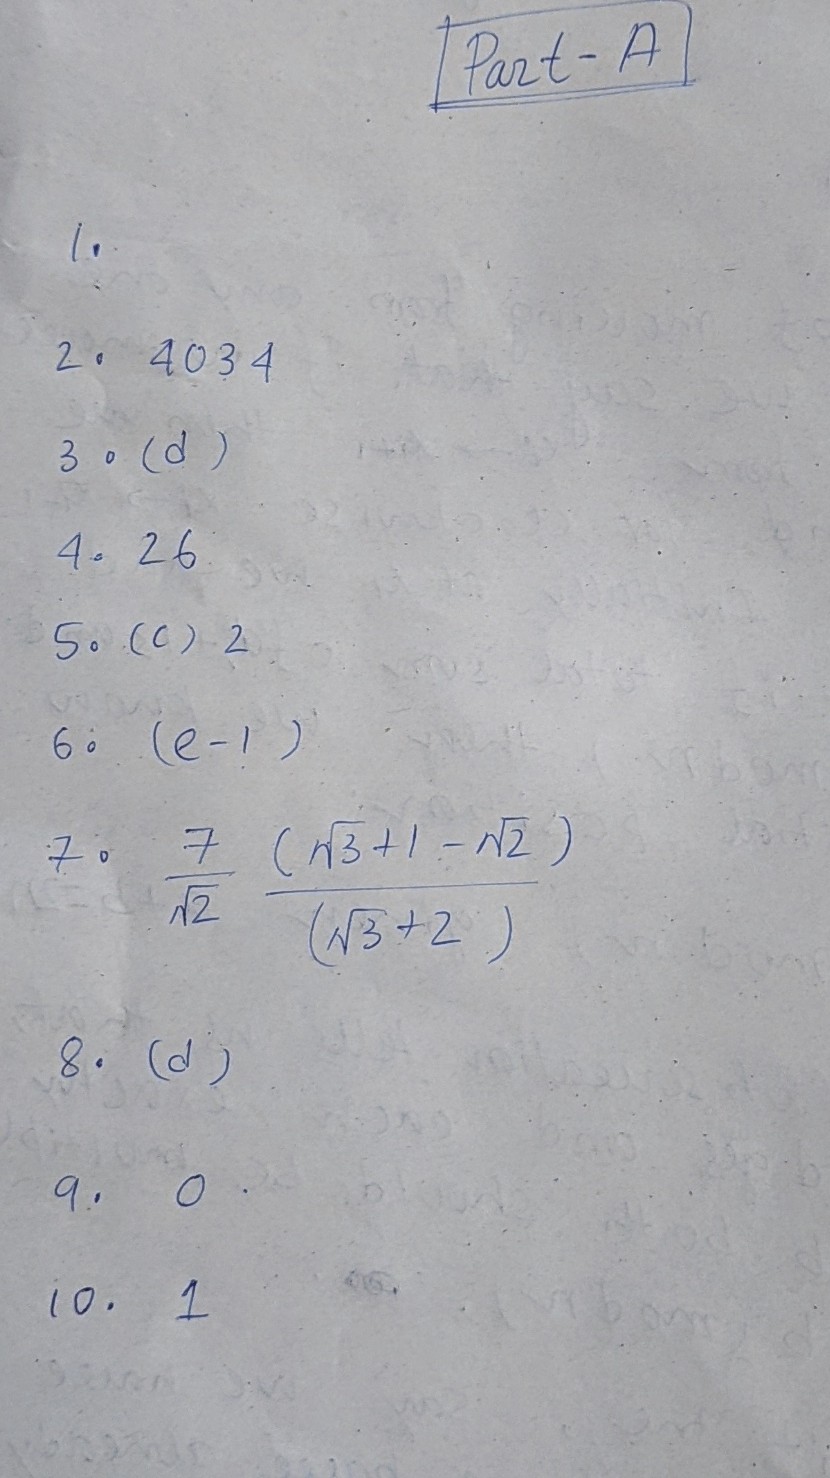 Part-A
1.
2. 4034
3. (d)
4. 26
5. (c) 2
6. (e-1)
7. 7/√2 (√3+1-√2)/(√3+2)
8. (d)
9. 0
10. 1